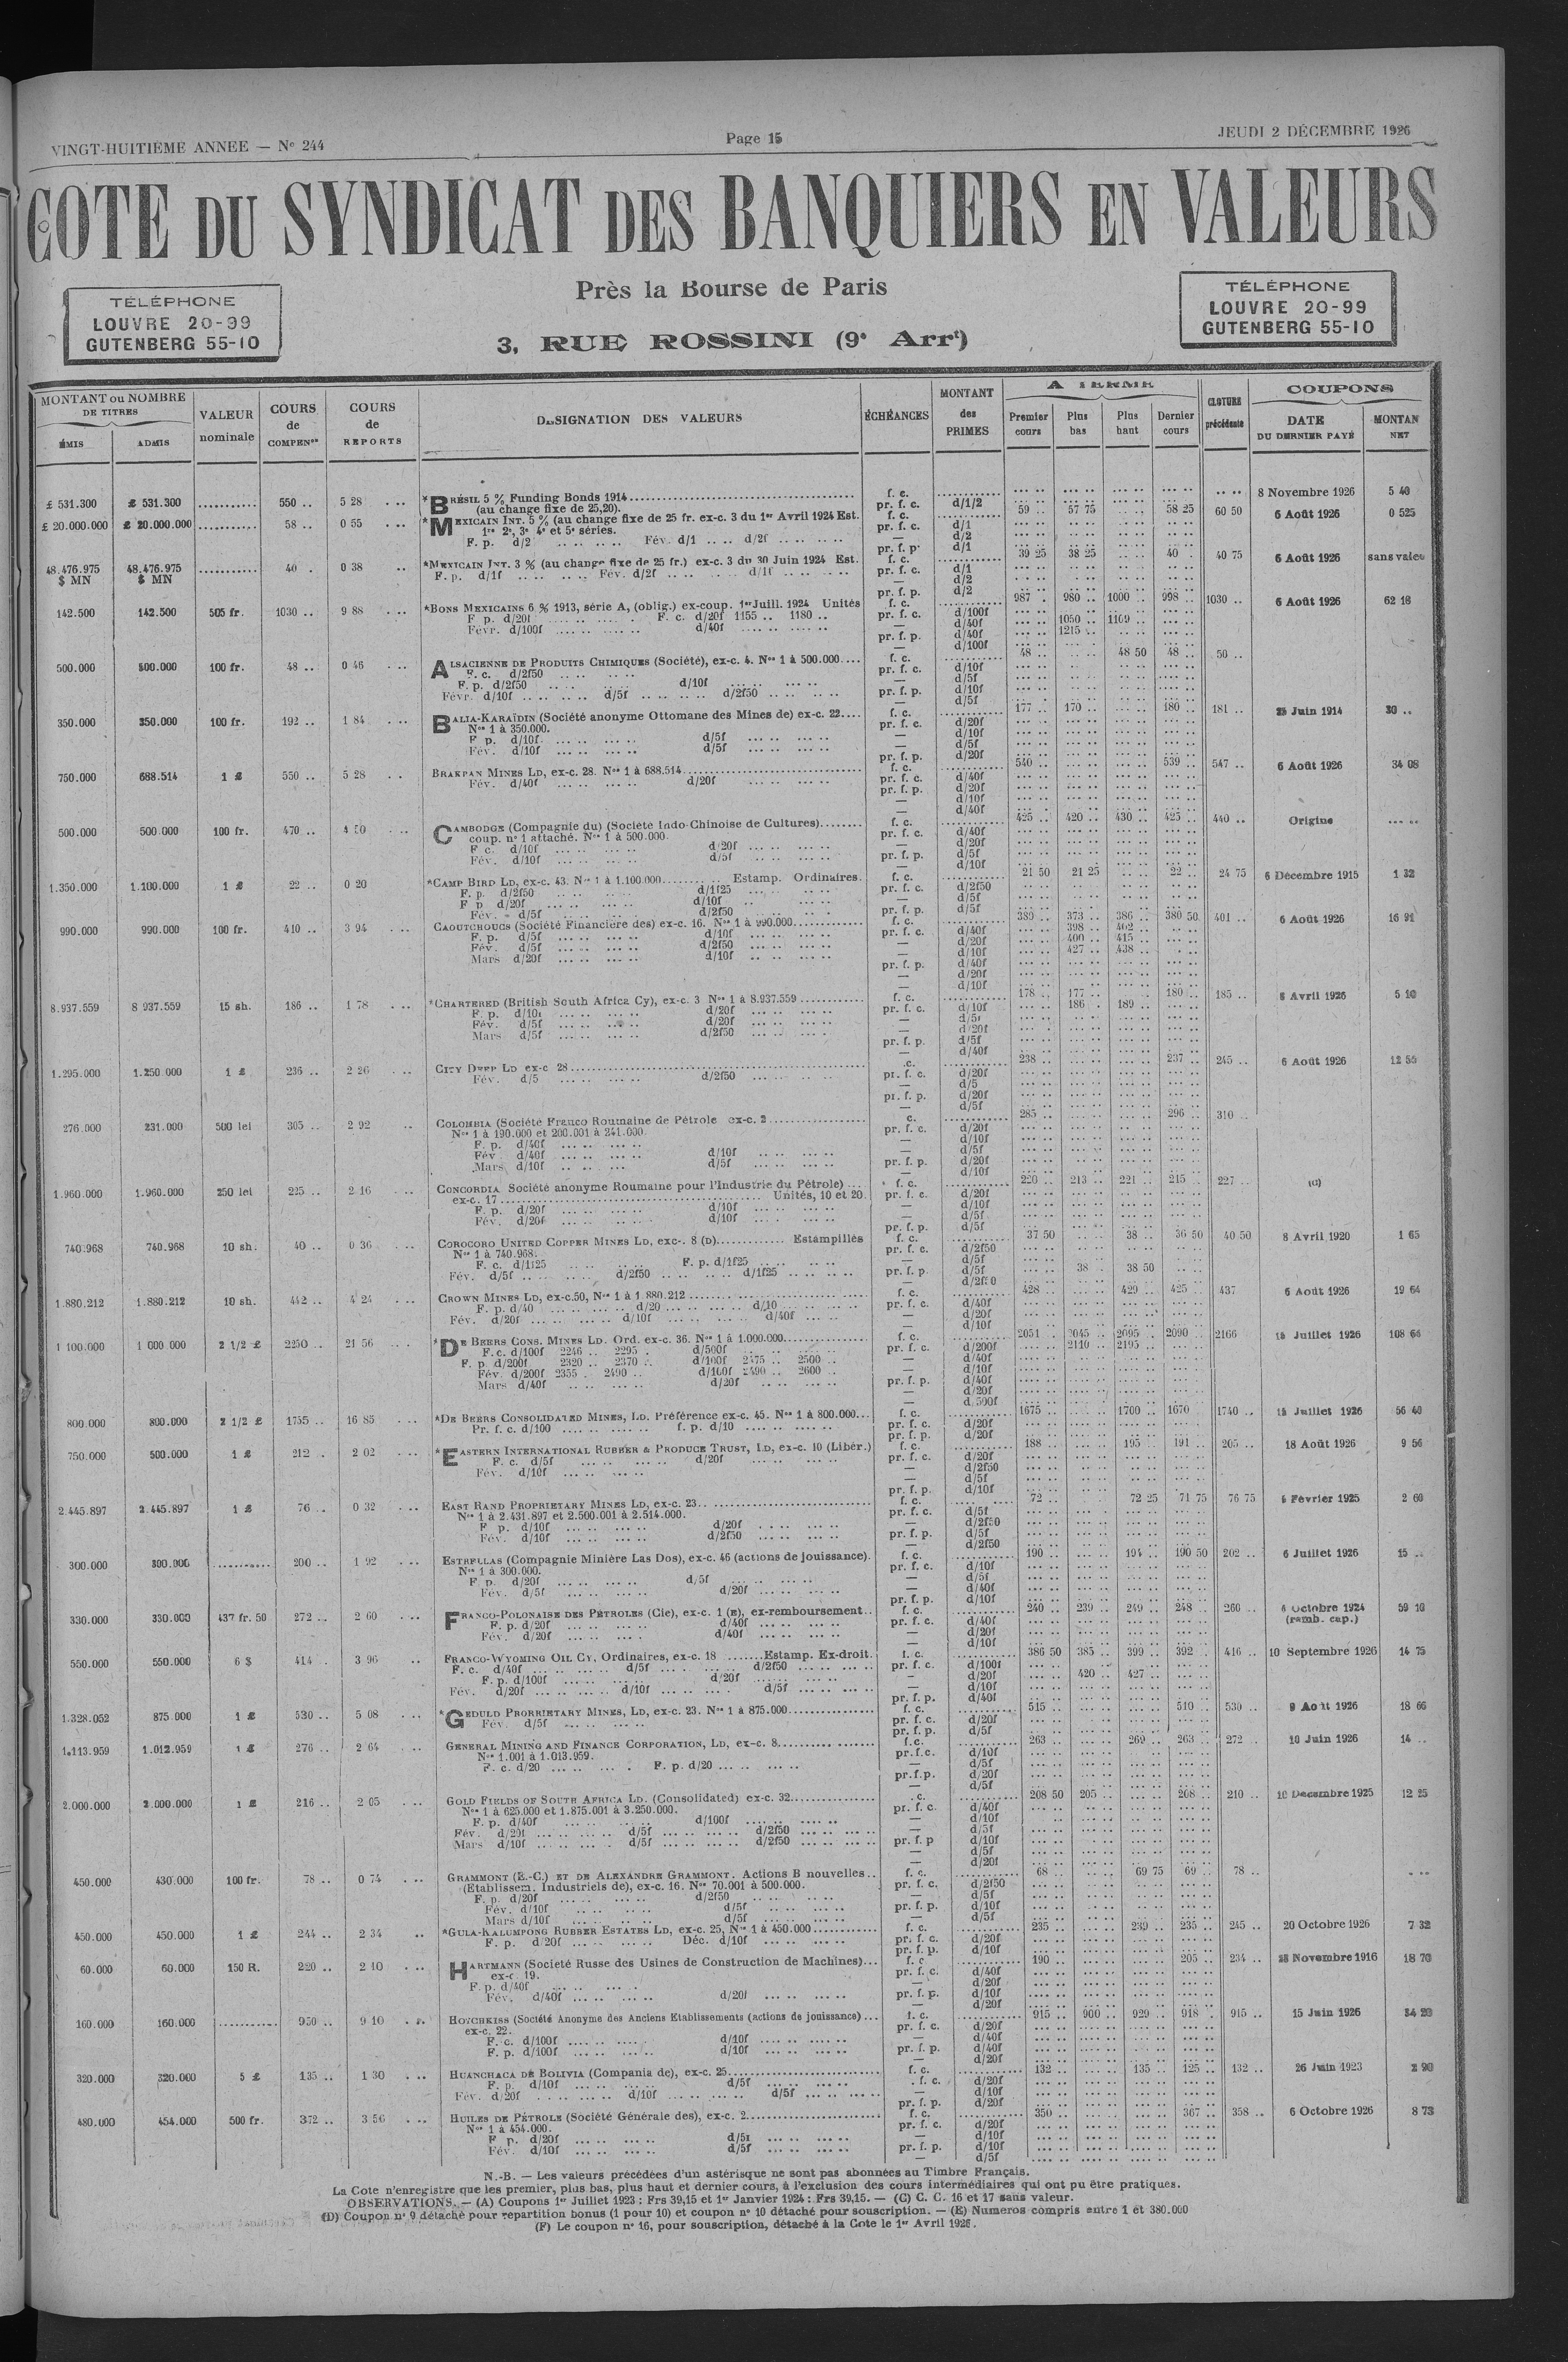 VINGT-HUITIÈME ANNEE — No 244
Page 15
JEUDI 2 DÉCEMBRE 1926
COTE DU SYNDICAT DES BANQUIERS EN VALEURS
Près la Bourse de Paris
3, RUE ROSSINI (9e Arrt)
TÉLÉPHONE
LOUVRE 20-99
GUTENBERG 55-10
TÉLÉPHONE
LOUVRE 20-99
GUTENBERG 55-10
MONTANT ou NOMBRE DE TITRES
ÉMIS ADMIS
VALEUR nominale
COURS de COMPENon
COURS de REPORTS
DÉSIGNATION DES VALEURS
ÉCHÉANCES
MONTANT des PRIMES
A TERME
Premier cours Plus bas Plus haut Dernier cours
CLOTURE précédente
COUPONS
DATE DU DERNIER PAYÉ
MONTAN NET
£ 531.300 £ 531.300 ........... 550 .. 5 28 *BRÉSIL 5 % Funding Bonds 1914 f. c. 8 Novembre 1926 5 40
(au change fixe de 25,20). pr. f. c. d/1/2
£ 20.000.000 £ 20.000.000 ........... 58 .. 0 55 *MEXICAIN INT. 5 % (au change fixe de 25 fr. ex-c. 3 du 1er Avril 1924 Est. f. c. 59 .. 57 75 58 25 60 50 6 Août 1926 0 525
1re 2e, 3e 4e et 5e séries. pr. f. c. d/1
F. p. d/2 Fév. d/1 d/2f — d/2
pr. f. p. d/1
48.476.975 $ MN 48.476.975 $ MN ........... 40 . 0 38 *MEXICAIN INT. 3 % (au change fixe de 25 fr.) ex-c. 3 du 30 Juin 1924 Est. f. c. 39 25 38 25 40 . 40 75 6 Août 1926 sans valeu
F. p. d/1f Fév. d/2f d/1f pr. f. c. d/1
— d/2
pr. f. p. d/2
142.500 142.500 505 fr. 1030 .. 9 88 *BONS MEXICAINS 6 % 1913, série A, (oblig.) ex-coup. 1er Juill. 1924 Unités f. c. 987 . 980 .. 1000 .. 998 .. 1030 .. 6 Août 1926 62 18
F p. d/20f F. c. d/20f 1155 .. 1180 .. pr. f. c. d/100f
Févr. d/100f d/40f — d/40f 1050 .. 1109 ..
pr. f. p. d/40f 1215 ..
— d/100f
500.000 500.000 100 fr. 48 .. 0 46 ALSACIENNE DE PRODUITS CHIMIQUES (Société), ex-c. 4. Nos 1 à 500.000 f. c. 48 .. 48 50 48 .. 50 ..
F. c. d/2f50 pr. f. c. d/10f
F. p. d/2f50 d/10f — d/5f
Févr. d/10f d/5f d/2f50 pr. f. p. d/10f
— d/5f
350.000 350.000 100 fr. 192 .. 1 84 BALIA-KARAÏDIN (Société anonyme Ottomane des Mines de) ex-c. 22 f. c. 177 .. 170 .. 180 .. 181 .. Juin 1914 30 ..
Nos 1 à 350.000. pr. f. c. d/20f
F p. d/10f d/5f — d/10f
Fév. d/10f d/5f — d/5f
pr. f. p. d/20f
750.000 688.514 1 £ 550 .. 5 28 BRAKPAN MINES LD, ex-c. 28. Nos 1 à 688.514 f. c. 540 .. 539 .. 547 .. 6 Août 1926 34 08
Fév. d/40f d/20f pr. f. c. d/40f
pr. f. p. d/20f
— d/10f
— d/40f
500.000 500 000 100 fr. 470 .. 4 50 CAMBODGE (Compagnie du) (Société Indo-Chinoise de Cultures) f. c. 425 .. 420 .. 430 .. 425 .. 440 .. Origine
coup. no 1 attaché. Nos 1 à 500.000. pr. f. c. d/40f
F c. d/10f d/20f — d/20f
Fév. d/10f d/5f pr. f. p. d/5f
— d/10f
1.350.000 1.100.000 1 £ 22 .. 0 20 *CAMP BIRD LD, ex-c. 43. Nos 1 à 1.100.000 Estamp. Ordinaires. f. c. 21 50 21 25 22 .. 24 75 6 Décembre 1915 1 32
F. p. d/2f50 d/1f25 pr. f. c. d/2f50
F p d/20f d/10f — d/5f
Fév. d/5f d/2f50 pr. f. p. d/5f
990.000 990.000 100 fr. 410 .. 3 94 CAOUTCHOUCS (Société Financière des) ex-c. 16. Nos 1 à 990.000 f. c. 380 .. 373 .. 386 .. 380 50 401 .. 6 Août 1926 16 91
F. p. d/5f d/10f pr. f. c. d/40f 398 .. 402 ..
Fév. d/5f d/2f50 — d/20f 400 .. 415 ..
Mars d/20f d/10f — d/10f 427 .. 438 ..
pr. f. p. d/40f
— d/20f
— d/10f
8.937.559 8 937.559 15 sh. 186 .. 1 78 *CHARTERED (British South Africa Cy), ex-c. 3 Nos 1 à 8.937.559 f. c. 178 .. 177 .. 180 .. 185 .. Avril 1926 5 10
F. p. d/10f d/20f pr. f. c. d/10f 186 . 189 ..
Fév. d/5f d/20f — d/5f
Mars d/5f d/2f50 — d/20f
pr. f. p. d/5f
— d/40f
1.295.000 1.250.000 1 £ 236 .. 2 26 CITY DEEP LD ex-c 28 .c. 238 .. 237 .. 245 .. 6 Août 1926 12 55
Fév. d/5 d/2f50 pr. f. c. d/20f
— d/5
pr. f. p. d/20f
— d/5f
276.000 231.000 500 lei 305 .. 2 92 COLOMBIA (Société Franco Roumaine de Pétrole ex-c. 2 c. 285 .. 296 .. 310 ..
Nos 1 à 190.000 et 200.001 à 241.000. pr. f. c. d/20f
F. p. d/40f — d/10f
Fév d/40f d/10f — d/5f
Mars d/10f d/5f pr. f. p. d/20f
— d/10f
1.960.000 1.960.000 250 lei 225 .. 2 16 CONCORDIA Société anonyme Roumaine pour l'Industrie du Pétrole) f. c. 220 .. 213 .. 221 .. 215 .. 227 .. (C)
ex-c. 17 Unités, 10 et 20. pr. f. c. d/20f
F. p. d/20f d/10f — d/10f
Fév. d/20f d/10f — d/5f
pr. f. p. d/5f
740.968 740.968 10 sh. 40 .. 0 36 COROCORO UNITED COPPER MINES LD, exc-. 8 (D) Estampillés f. c. 37 50 38 .. 36 50 40 50 8 Avril 1920 1 65
Nos 1 à 740.968. pr. f. c. d/2f50
F. c. d/1f25 F. p. d/1f25 — d/5f
Fév. d/5f d/2f50 d/1f25 pr. f. p. d/5f 38 . 38 50
— d/2f50
1.880.212 1.880.212 10 sh. 442 .. 4 24 CROWN MINES LD, ex-c.50, Nos 1 à 1 880.212 f. c. 428 .. 429 .. 425 .. 437 6 Août 1926 19 64
F. p. d/40 d/20 d/10 pr. f. c. d/40f
Fév. d/20f d/10f d/40f — d/20f
— d/10f
1 100.000 1 000 000 2 1/2 £ 2250 .. 21 56 *DE BEERS CONS. MINES LD. Ord. ex-c. 36. Nos 1 à 1.000.000 f. c. 2051 . 2045 .. 2095 .. 2090 .. 2166 Juillet 1926 108 64
F.c. d/100f 2246 .. 2295 . d/500f pr. f. c. d/200f 2110 .. 2195 ..
F. p. d/200f 2320 .. 2370 .. d/100f 2475 .. 2500 .. — d/40f
Fév. d/200f 2355 . 2490 .. d/100f 2490 .. 2600 .. — d/10f
Mars d/40f d/20f pr. f. p. d/40f
— d/20f
d/500f
800.000 800.000 2 1/2 £ 1755 .. 16 85 *DE BEERS CONSOLIDATED MINES, LD. Préférence ex-c. 45. Nos 1 à 800.000 f. c. 1675 .. 1700 .. 1670 1740 .. Juillet 1926 56 40
Pr. f. c. d/100 f. p. d/10 pr. f. c. d/20f
pr. f. p. d/20f
750.000 500.000 1 £ 212 . 2 02 *EASTERN INTERNATIONAL RUBBER & PRODUCE TRUST, LD, ex-c. 10 (Libér.) f. c. 188 .. 195 .. 191 .. 205 .. 18 Août 1926 9 56
F. c. d/5f d/20f pr. f. c. d/20f
Fév. d/10f — d/2f50
— d/5f
pr. f. p. d/10f
2.445.897 2.445.897 1 £ 76 .. 0 32 EAST RAND PROPRIETARY MINES LD, ex-c. 23 f. c. 72 .. 72 25 71 75 76 75 Février 1925 2 60
Nos 1 à 2.431.897 et 2.500.001 à 2.514.000. pr. f. c. d/5f
F p. d/10f d/20f — d/2f50
Fév. d/10f d/2f50 pr. f. p. d/5f
— d/2f50
300.000 300.000 ........... 200 .. 1 92 ESTRELLAS (Compagnie Minière Las Dos), ex-c. 46 (actions de jouissance). f. c. 190 .. 194 .. 190 50 202 .. 6 Juillet 1926 15 ..
Nos 1 à 300.000. pr. f. c. d/10f
F. p. d/20f d/5f — d/5f
Fév. d/5f d/20f — d/40f
pr. f. p. d/10f
330.000 330.000 437 fr. 50 272 .. 2 60 FRANCO-POLONAISE DES PÉTROLES (Cie), ex-c. 1 (E), ex-remboursement f. c. 240 .. 239 .. 249 .. 248 .. 260 .. Octobre 1924 59 10
F. p. d/20f d/40f pr. f. c. d/40f (remb. cap.)
Fév. d/20f d/40f — d/20f
— d/10f
550.000 550.000 6 $ 414 . 3 96 FRANCO-WYOMING OIL CY, Ordinaires, ex-c. 18 Estamp. Ex-droit. f. c. 386 50 385 .. 399 .. 392 .. 416 .. 10 Septembre 1926 14 75
F. c. d/40f d/5f d/2f50 pr. f. c. d/100f
F. p. d/100f d/20f — d/20f 420 .. 427 ..
Fév. d/20f d/10f d/5f — d/10f
pr. f. p. d/40f
1.328.052 875.000 1 £ 530 .. 5 08 *GEDULD PRORRIETARY MINES, LD, ex-c. 23. Nos 1 à 875.000 f. c. 515 .. 510 .. 530 .. Août 1926 18 66
Fév. d/5f pr. f. c. d/20f
pr. f. p. d/5f
1.113.959 1.012.959 1 £ 276 .. 2 64 GENERAL MINING AND FINANCE CORPORATION, LD, ex-c. 8 f.c. 263 .. 269 .. 263 .. 272 .. 10 Juin 1926 14 ..
Nos 1.001 à 1.013.959. pr.f.c. d/10f
F. c. d/20 F. p. d/20 — d/5f
pr.f.p. d/20f
— d/5f
2.000.000 2.000.000 1 £ 216 .. 2 05 GOLD FIELDS OF SOUTH AFRICA LD. (Consolidated) ex-c. 32 c. 208 50 205 .. 208 .. 210 .. Décembre 1925 12 25
Nos 1 à 625.000 et 1.875.001 à 3.250.000. pr. f. c. d/40f
F. p. d/40f d/100f — d/10f
Fév. d/20f d/5f d/2f50 — d/5f
Mars d/10f d/5f d/2f50 pr. f. p d/10f
— d/5f
— d/20f
450.000 430.000 100 fr. 78 .. 0 74 GRAMMONT (E.-C.) ET DE ALEXANDRE GRAMMONT. Actions B nouvelles f. c. 68 .. 69 75 69 .. 78 ..
(Etablissem. Industriels de), ex-c. 16. Nos 70.001 à 500.000. pr. f. c. d/2f50
F. p. d/20f d/2f50 — d/5f
Fév. d/10f d/5f pr. f. p. d/10f
Mars d/10f d/5f — d/5f
450.000 450.000 1 £ 244 .. 2 34 *GULA-KALUMPONG RUBBER ESTATES LD, ex-c. 25, Nos 1 à 450.000 f. c. 235 .. 239 .. 235 .. 245 .. 20 Octobre 1926 7 32
F. p. d/20f Déc. d/10f pr. f. c. d/20f
pr. f. p. d/10f
60.000 60.000 150 R. 220 .. 2 10 HARTMANN (Societé Russe des Usines de Construction de Machines) f. c 190 .. 205 .. 234 .. Novembre 1916 18 70
ex-c. 19. pr. f. c. d/40f
F. p. d/40f — d/20f
Fév. d/40f d/20f pr. f. p. d/10f
— d/20f
160.000 160.000 ........... 950 .. 9 10 HOTCHKISS (Société Anonyme des Anciens Etablissements (actions de jouissance) f. c. 915 .. 900 .. 929 .. 918 .. 915 .. 15 Juin 1926 34 20
ex-c. 22. pr. f. c. d/20f
F. c. d/100f d/10f — d/40f
F. p. d/100f d/10f pr. f. p. d/40f
— d/20f
320.000 320.000 5 £ 135 .. 1 30 HUANCHACA DE BOLIVIA (Compania de), ex-c. 25 f. c. 132 .. 135 .. 125 .. 132 .. 26 Juin 1923 2 90
F. p. d/10f d/5f . f. c. d/20f
Fév. d/20f d/10f d/5f — d/10f
pr. f. p. d/20f
480.000 454.000 500 fr. 372 .. 3 56 HUILES DE PÉTROLE (Société Générale des), ex-c. 2 f. c. 350 .. 367 .. 358 .. 6 Octobre 1926 8 73
Nos 1 à 454.000. pr. f. c. d/20f
F p. d/20f d/5f — d/10f
Fév. d/10f d/5f pr. f. p. d/10f
— d/5f
N.-B. — Les valeurs précédées d'un astérisque ne sont pas abonnées au Timbre Français.
La Cote n'enregistre que les premier, plus bas, plus haut et dernier cours, à l'exclusion des cours intermédiaires qui ont pu être pratiques.
OBSERVATIONS. — (A) Coupons 1er Juillet 1923 : Frs 39,15 et 1er Janvier 1924 : Frs 39,15. — (C) C. C. 16 et 17 sans valeur.
(D) Coupon no 9 détaché pour repartition bonus (1 pour 10) et coupon no 10 détaché pour souscription. — (E) Numeros compris entre 1 et 380.000
(F) Le coupon no 16, pour souscription, détaché à la Cote le 1er Avril 1926.